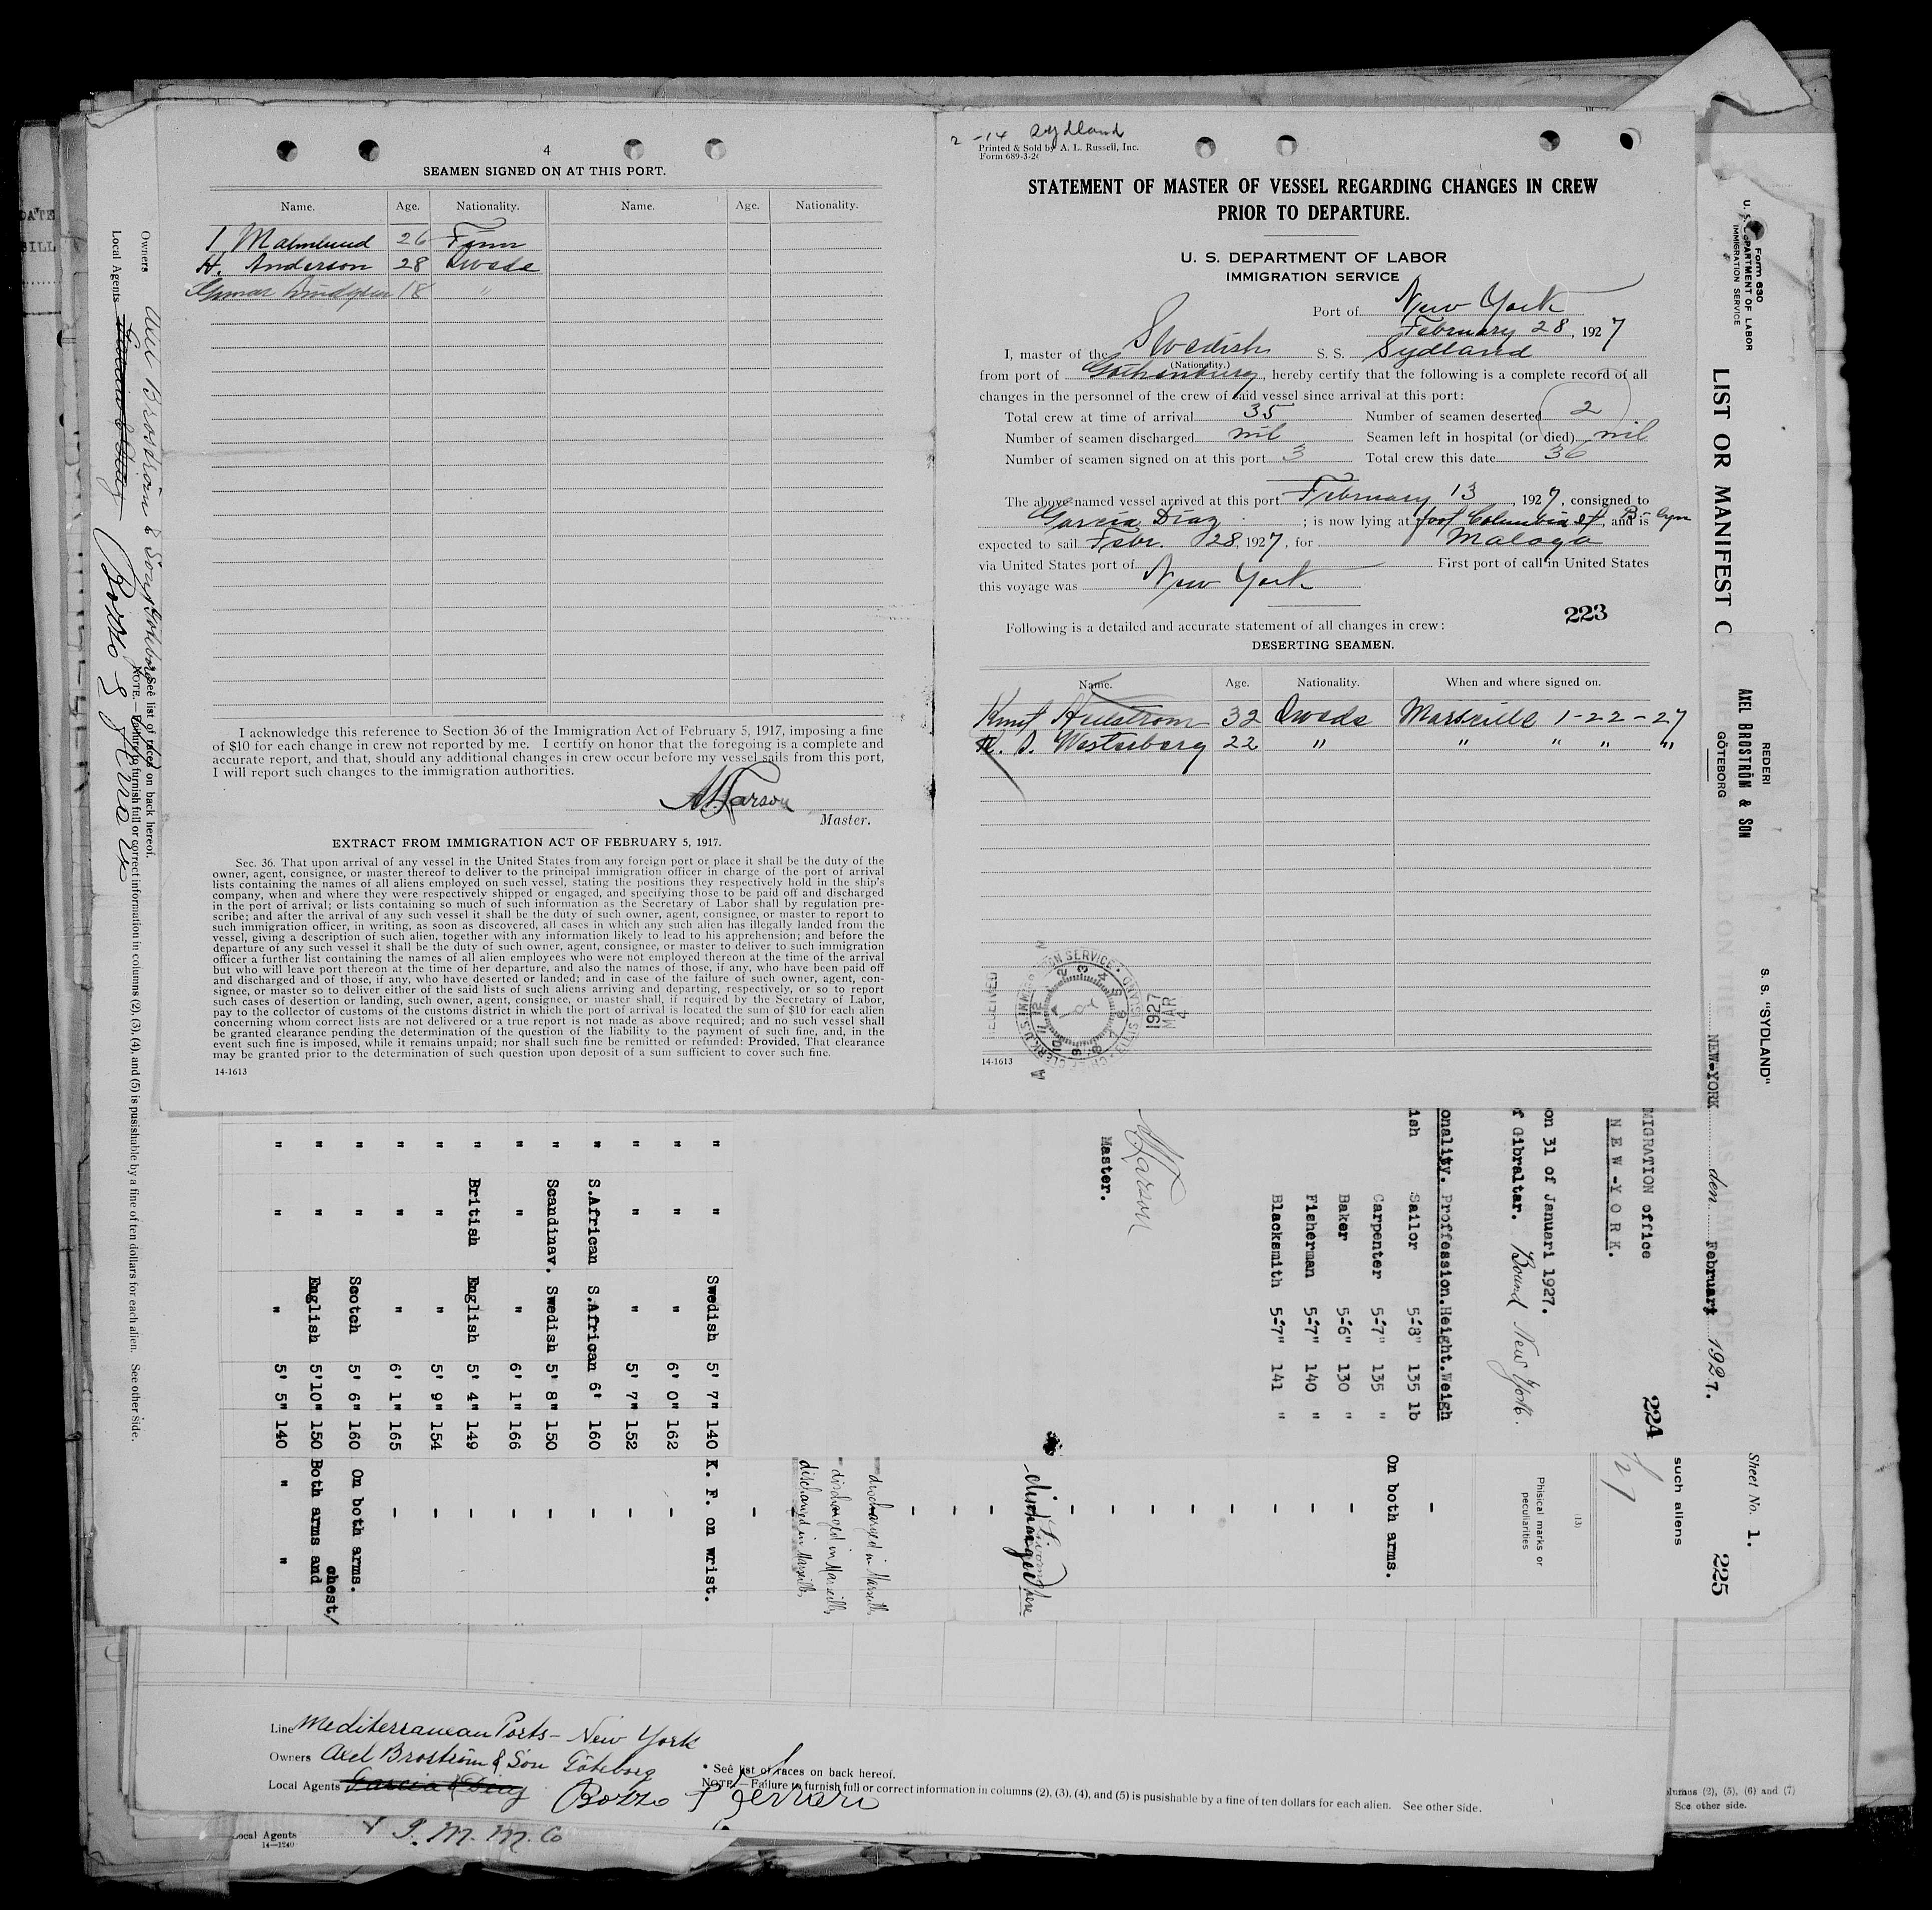 4
SEAMEN SIGNED ON AT THIS PORT.
Name. Age. Nationality. Name. Age. Nationality.
I Malmlund 26 Finn
H. Anderson 28 Swede
Gunnar Lindgren 18 "
I acknowledge this reference to Section 36 of the Immigration Act of February 5, 1917, imposing a fine
of $10 for each change in crew not reported by me. I certify on honor that the foregoing is a complete and
accurate report, and that, should any additional changes in crew occur before my vessel sails from this port,
I will report such changes to the immigration authorities.
Master.
EXTRACT FROM IMMIGRATION ACT OF FEBRUARY 5, 1917.
Sec. 36. That upon arrival of any vessel in the United States from any foreign port or place it shall be the duty of the
owner, agent, consignee, or master thereof to deliver to the principal immigration officer in charge of the port of arrival
lists containing the names of all aliens employed on such vessel, stating the positions they respectively hold in the ship's
company, when and where they were respectively shipped or engaged, and specifying those to be paid off and discharged
in the port of arrival; or lists containing so much of such information as the Secretary of Labor shall by regulation pre-
scribe; and after the arrival of any such vessel it shall be the duty of such owner, agent, consignee, or master to report to
such immigration officer, in writing, as soon as discovered, all cases in which any such alien has illegally landed from the
vessel, giving a description of such alien, together with any information likely to lead to his apprehension; and before the
departure of any such vessel it shall be the duty of such owner, agent, consignee, or master to deliver to such immigration
officer a further list containing the names of all alien employees who were not employed thereon at the time of the arrival
but who will leave port thereon at the time of her departure, and also the names of those, if any, who have been paid off
and discharged and of those, if any, who have deserted or landed; and in case of the failure of such owner, agent, con-
signee, or master so to deliver either of the said lists of such aliens arriving and departing, respectively, or so to report
such cases of desertion or landing, such owner, agent, consignee, or master shall, if required by the Secretary of Labor,
pay to the collector of customs of the customs district in which the port of arrival is located the sum of $10 for each alien
concerning whom correct lists are not delivered or a true report is not made as above required; and no such vessel shall
be granted clearance pending the determination of the question of the liability to the payment of such fine, and, in the
event such fine is imposed, while it remains unpaid; nor shall such fine be remitted or refunded: Provided, That clearance
may be granted prior to the determination of such question upon deposit of a sum sufficient to cover such fine.
14-1613
2-14 Sydland
Printed & Sold by A. L. Russell, Inc.
Form 689-3-26
STATEMENT OF MASTER OF VESSEL REGARDING CHANGES IN CREW
PRIOR TO DEPARTURE.
U. S. DEPARTMENT OF LABOR
IMMIGRATION SERVICE
Port of New York
February 28, 1927
I, master of the Swedish S. S. Sydland
(Nationality.)
from port of Gothenburg, hereby certify that the following is a complete record of all
changes in the personnel of the crew of said vessel since arrival at this port:
Total crew at time of arrival 35 Number of seamen deserted 2
Number of seamen discharged nil Seamen left in hospital (or died) nil
Number of seamen signed on at this port 3 Total crew this date 36
The above-named vessel arrived at this port February 13, 1927, consigned to
Garcia Diaz; is now lying at foot Columbia St, and is
expected to sail Febr. 28, 1927, for Malaga
via United States port of First port of call in United States
this voyage was New York
223
Following is a detailed and accurate statement of all changes in crew:
DESERTING SEAMEN.
Name. Age. Nationality. When and where signed on.
Knut 32 Swede Marseille 1-22-27
Westerberg 22 " " " " "
RECEIVED
CLERK U.S. IMMIGRATION SERVICE
1927
MAR
4
14-1613
Form 630
U. S. DEPARTMENT OF LABOR
IMMIGRATION SERVICE
LIST OR MANIFEST
REDERI
AXEL BROSTRÖM & SON
GÖTEBORG
S. S. "SYDLAND"
NEW-YORK den Februari 1927.
224
MIGRATION office
NEW-YORK.
on 31 of Januari 1927.
f Gibraltar. Bound New York.
onality. Proffession.Height.Weigh
ish Sailor 5-8" 135 lb
Carpenter 5-7" 135 "
Baker 5-6" 130 "
Fisherman 5-7" 140 "
Blacksmith 5-7" 141 "
Master.
Sheet No. 1.
225
such aliens
(13)
Phisical marks or
peculiarities
-
On both arms.
discharged here
discharged in Marseille
discharged in Marseille
discharged in Marseille
" Swedish 5' 7" 140 K. F. on wrist.
" " 6' 0" 162 -
" " 5' 7" 152 -
S.African S.African 6' 160 -
Scandinav. Swedish 5' 8" 150 -
" " 6' 1" 166 -
British English 5' 4" 149 -
" " 5' 9" 154 -
" " 6' 1" 165 -
" Scotch 5' 6" 160 On both arms.
" English 5'10" 150 Both arms and
chest/
" " 5' 5" 140 " "
Owners Axel Broström & Son, Göteborg
Local Agents Garcia & Diaz Bozzo & Ferrari
See list of races on back hereof.
NOTE.—Failure to furnish full or correct information in columns (2), (3), (4), and (5) is pusishable by a fine of ten dollars for each alien. See other side.
Line Mediterranean Ports - New York
Owners Axel Broström & Son Göteborg
Local Agents Garcia & Diaz Bozzo & Ferrari
* See list of races on back hereof.
NOTE.—Failure to furnish full or correct information in columns (2), (3), (4), and (5) is pusishable by a fine of ten dollars for each alien. See other side.
Local Agents I. M. M. Co
14-1240
olumns (2), (5), (6) and (7)
See other side.
DATE
BILL